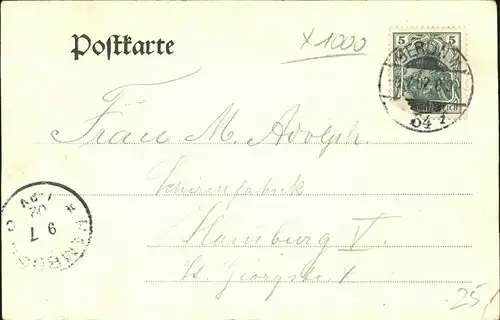 Postkarte
x 1000
5 5
BERLIN
54
Fräu M. Adolph.
Schirmfabrik
Hamburg V.
St. Georgstr. 1
HAMBURG
9 7
02
25